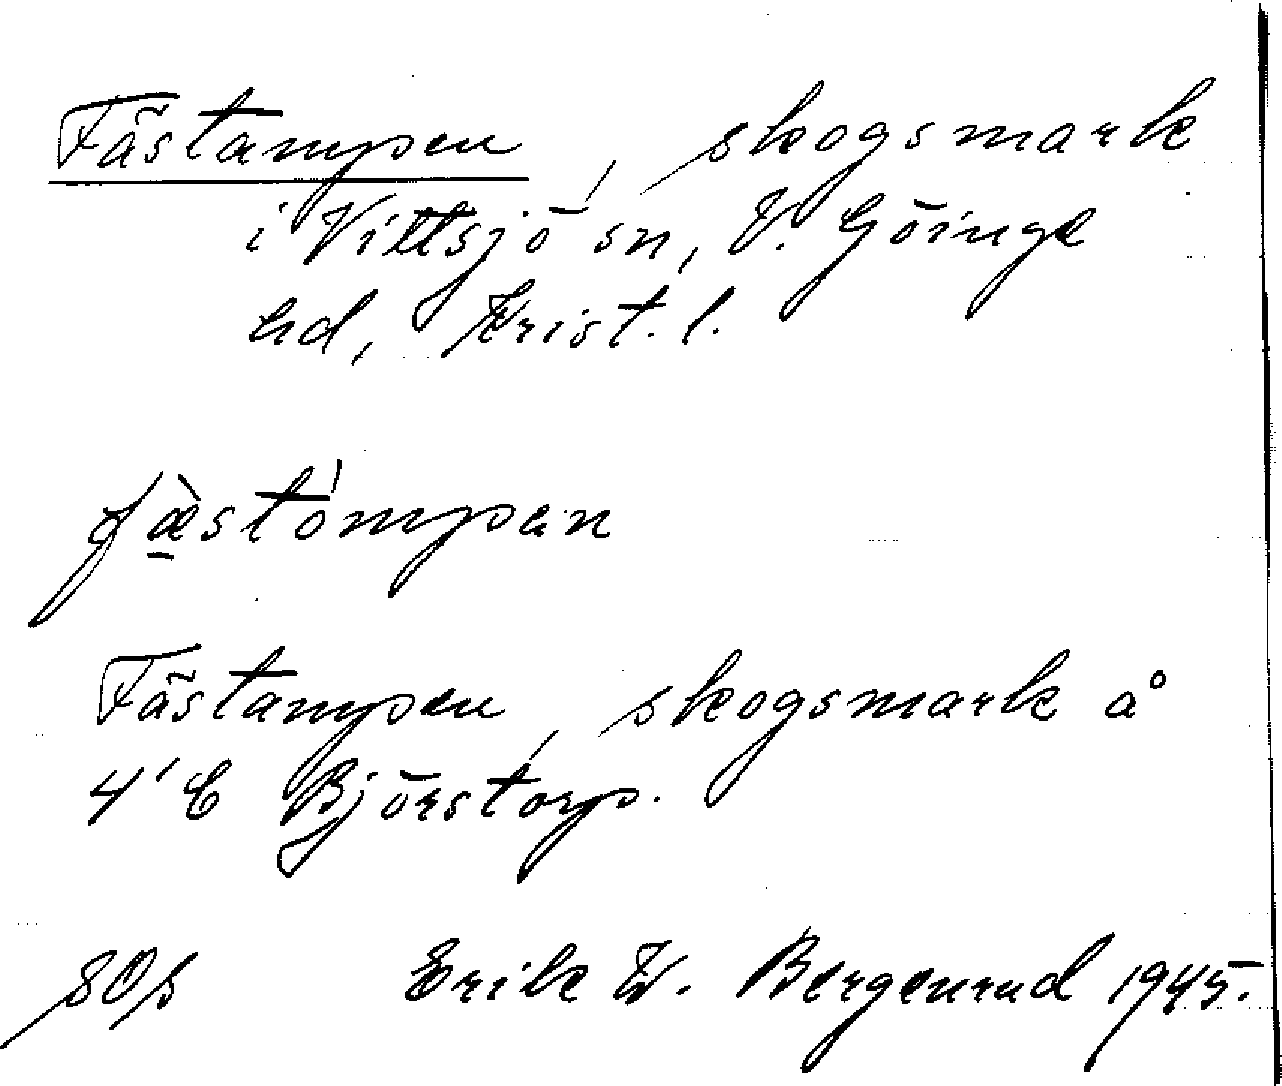 Fästampen, skogsmark
i Vittsjö sn, V. Göinge
hd, Krist. l.
fæ̀stómpen
Fästampen, skogsmark å
4¹ C Björstorp.
Erik W. Bergenrud 1945.